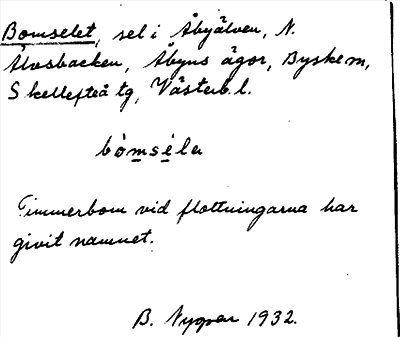 Bomselet, sel i Åbyälven, N.
Älvsbacken, Åbyns ägor, Byske sn,
Skellefteå tg, Västerb. l.
bòmsélə
Timmerbom vid flottningarna har
givit namnet.
B. Nygren 1932.